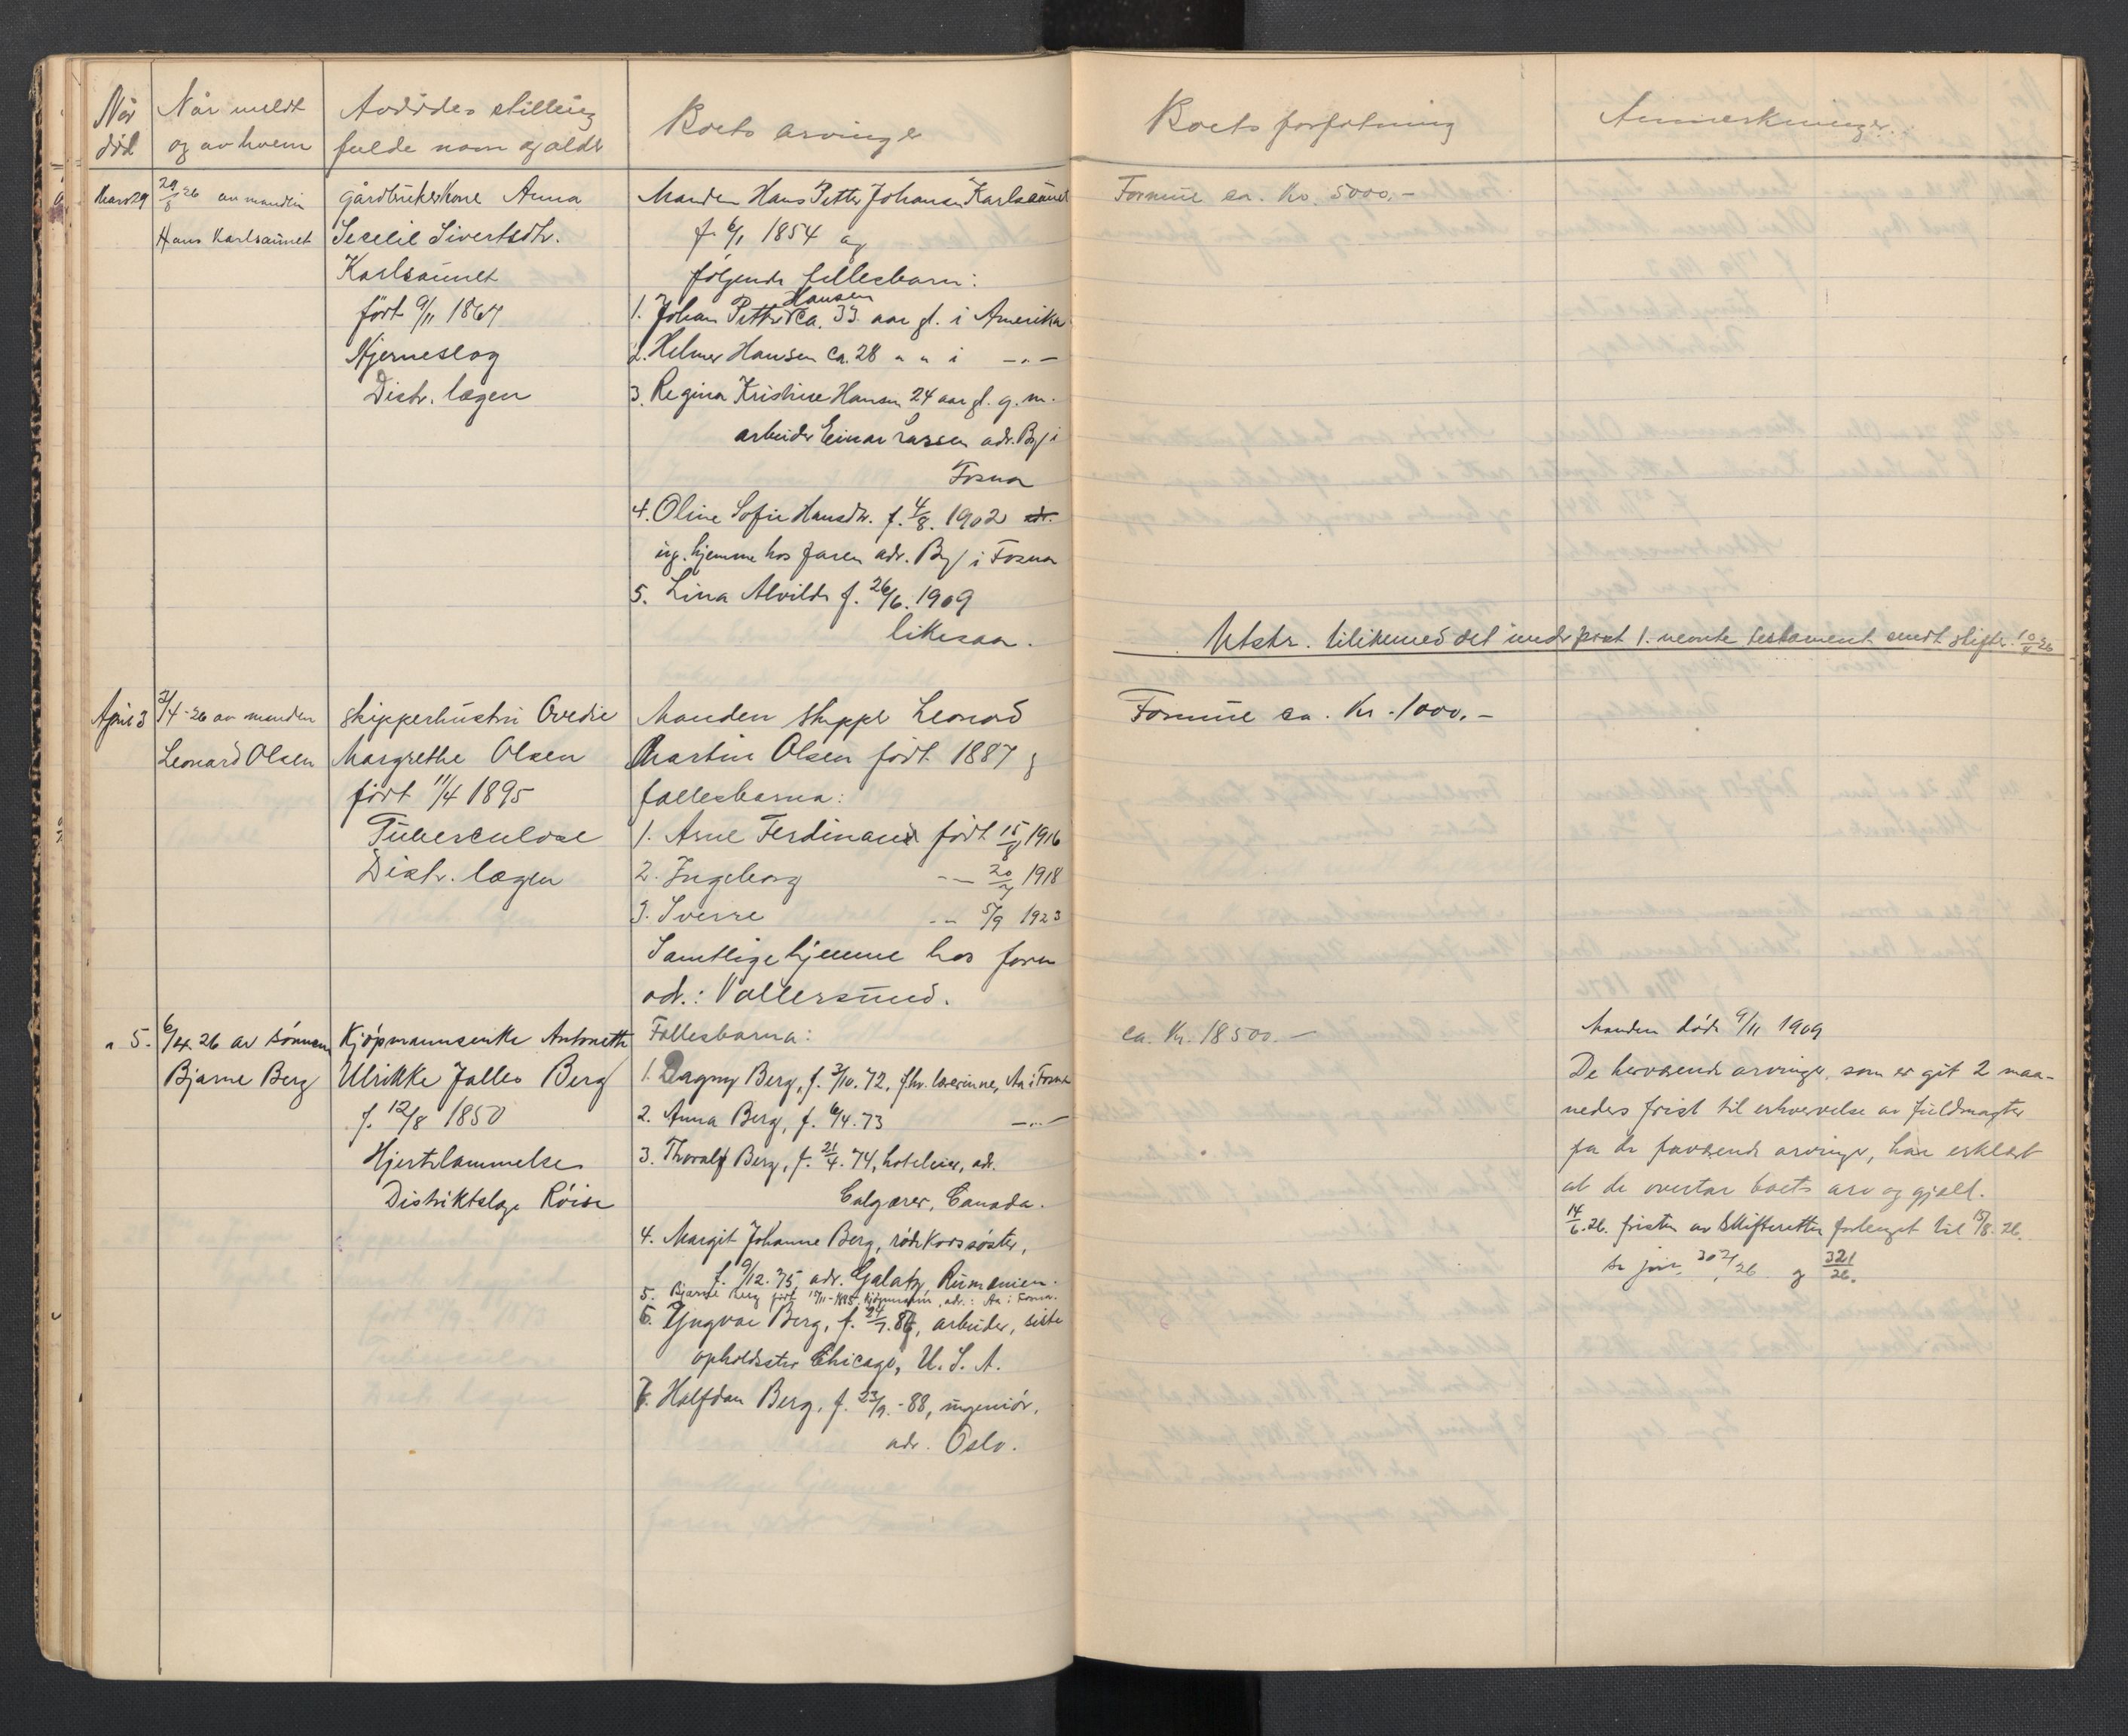 Når død
Når meldt og av hvem
Avdødes stilling fulde navn og alder
Boets arvinger
Boets forfatning
Anmerkninger.
Mars 29
29/3 26 av manden
Hans Karlsaunet
Gårdbrukerkone Anna
Secelie Sivertsdtr.
Karlsaunet
født 9/11 1867
Hjerneslag
Distr. lægen
Manden Hans Petter Johansen Karlsaunet
f. 6/1 1854 og
følgende fellesbarn:
1. Johan Petter Hansen ca. 33 aar gl. i Amerika
2. Helmer Hansen ca. 28 " " i —"—
3. Regina Kristine Hansen 24 aar gl. g. m.
arbeider Einar Larsen adr. By i
Fosna
4. Oline Sofie Hansdtr. f. 4/8. 1902 adr.
ug. hjemme hos faren adr. By i Fosna
5. Lina Alvilde f. 26/6. 1909
likesaa.
Formue ca. Kr. 5000,-
Utskr. tilikemed det under post 1. nevnte testament sendt skifter. 10/4 26
April 3
3/4-26 av manden
Leonard Olsen
Skipperhustru Ovedie
Margrethe Olsen
født 11/4 1895
Tuberculose
Distr. lægen
Manden skipper Leonard
Martin Olsen født 1887 og
fællesbarna:
1. Arne Ferdinand født 15/8 1916
2. Ingeborg —"— 20/7 1918
3. Sverre —"— 5/9 1923
Samtlige hjemme hos faren
adr.: Vallersund.
Formue ca. Kr. 1000.-
" 5.
6/4. 26 av sønnen
Bjarne Berg
Kjøpmannsenke Antonette
Ulrikke Jalles Berg
f. 12/8 1850
Hjertelammelse
Distriktslæge Röise
Fellesbarna:
1. Dagny Berg, f. 3/10. 72, fhv. lærerinne, Aa i Fosna
2. Anna Berg, f. 6/4. 73 —"—
3. Thoralf Berg, f. 21/4. 74, hoteleier, adr.
Calgarer, Canada.
4. Margit Johanne Berg, röde kors søster,
f. 9/12. 75, adr. Galatz, Rumænien.
5. Bjarne Berg født 15/11-1885, kjøpmann, adr.: Aa i Fosna.
6. Yngvar Berg, f. 24/7. 86, arbeider, siste
opholdssted Chicago, U. S. A.
7. Halfdan Berg, f. 23/9.-88, ingeniør,
adr. Oslo.
ca. Kr. 18500.—
Manden døde 9/11 1909
De herværende arvinger, som er git 2 maa-
neders frist til erhvervelse av fuldmagter
fra de fraværende arvinger, har erklært
at de overtar boets arv og gjæld.
14/6. 26. fristen av Skifteretten forlenget til 15/8. 26.
se jour. 302/26 og 321/26.